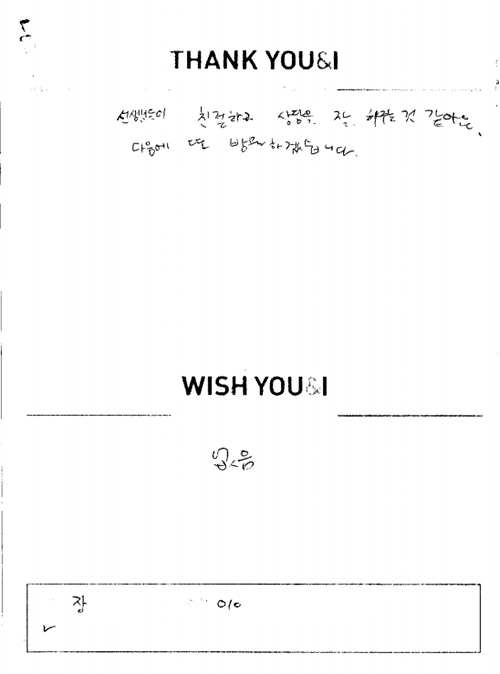 THANK YOU&I
선생님들이 친절하고 상담을 잘 해주는 것 같아요.
다음에 또 방문하겠습니다.
WISH YOU&I
없음
장 010